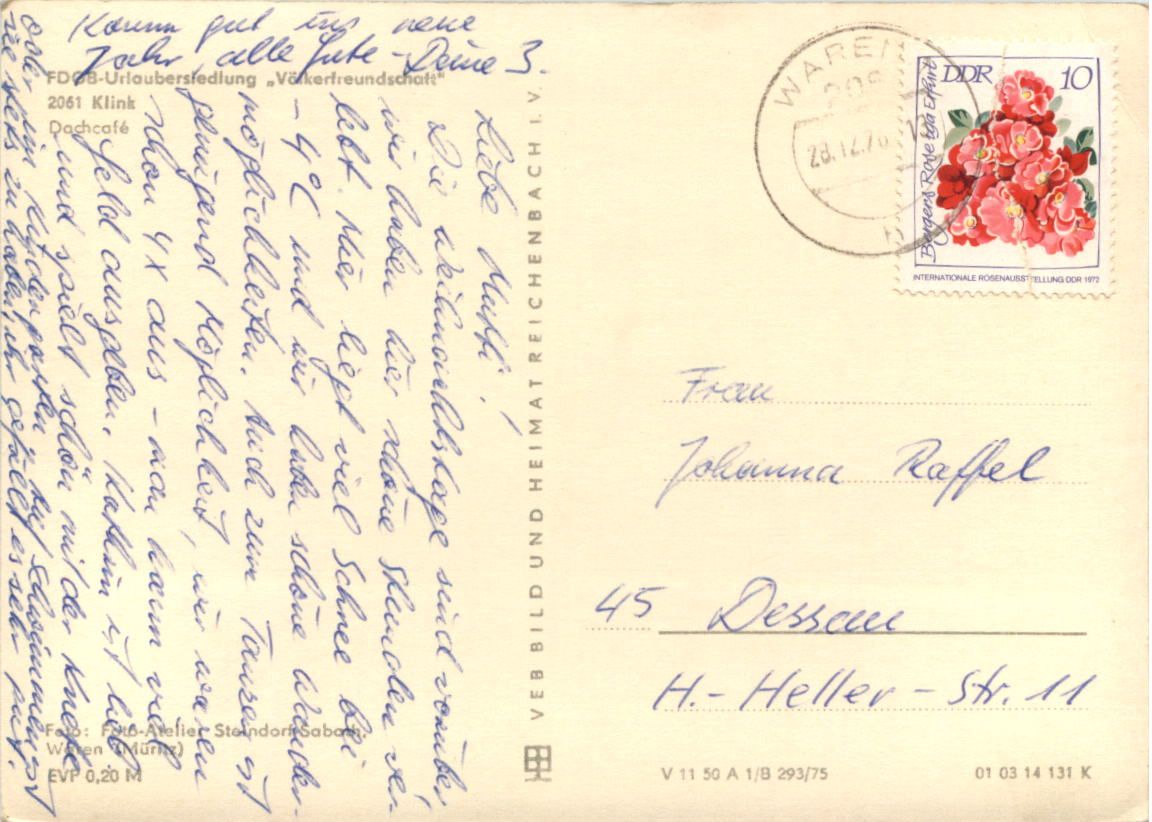 Komm gut ins neue
Jahr, alle Gute - Deine 3.
FDGB-Urlaubersiedlung „Völkerfreundschaft"
2061 Klink
Dachcafé
Liebe Mutti!
Die Weihnachtstage sind vorüber
wir haben hier schöne Stunden ver-
lebt. Hier liegt viel Schnee bei
- 4°C und wir haben schöne Wander-
möglichkeiten. Auch zum Tanzen ist
genügend Möglichkeit, wir waren
schon 4x aus - man kann viel
Geld ausgeben. Kathrin ist lieb
und spielt schön mit der Knete
oder im Kindergarten. Auf Schwimmen ist
sie stets zu haben, ihr gefällt es sehr gut.
Foto: Foto-Atelier Steindorf/Sabath,
Waren (Müritz)
EVP 0,20 M
VEB BILD UND HEIMAT REICHENBACH I. V.
WAREN
206
28.12.76
b
DDR 10
Bergers Rose iga Erfurt
INTERNATIONALE ROSENAUSSTELLUNG DDR 1972
Frau
Johanna Raffel
45 Dessau
H.-Heller-Str. 11
V 11 50 A 1/B 293/75
01 03 14 131 K